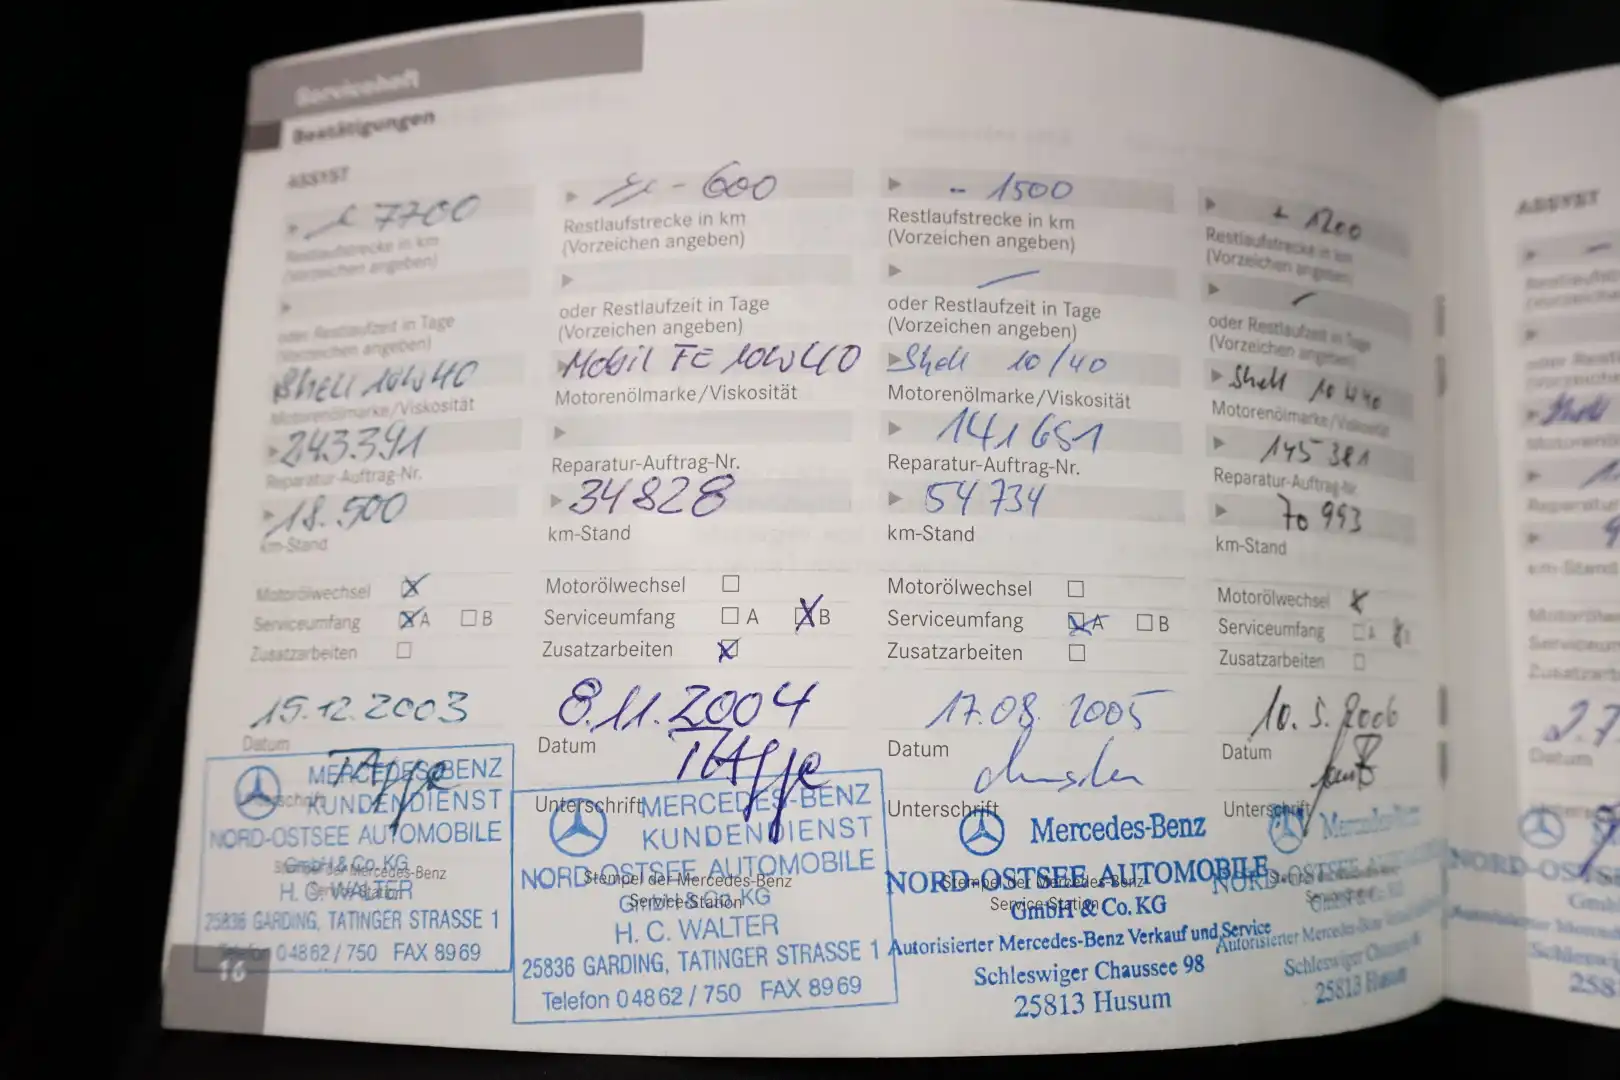 Serviceheft
Bestätigungen
ASSYST
7700
Restlaufstrecke in km
(Vorzeichen angeben)
oder Restlaufzeit in Tage
(Vorzeichen angeben)
Shell 10W40
Motorenölmarke/Viskosität
243.391
Reparatur-Auftrag-Nr.
18.500
km-Stand
Motorölwechsel
Serviceumfang A B
Zusatzarbeiten
15.12.2003
Datum
MERCEDES-BENZ
KUNDENDIENST
NORD-OSTSEE AUTOMOBILE
GmbH & Co. KG
der Mercedes-Benz
H. C. WALTER
25836 GARDING, TATINGER STRASSE 1
Telefon 04862/750 FAX 8969
16
- 600
Restlaufstrecke in km
(Vorzeichen angeben)
oder Restlaufzeit in Tage
(Vorzeichen angeben)
Mobil FE 10W40
Motorenölmarke/Viskosität
Reparatur-Auftrag-Nr.
34828
km-Stand
Motorölwechsel
Serviceumfang A B
Zusatzarbeiten
8.11.2004
Datum
Unterschrift
MERCEDES-BENZ
KUNDENDIENST
NORD-OSTSEE AUTOMOBILE
Stempel der Mercedes-Benz
GmbH & Co. KG
Service-Station
H. C. WALTER
25836 GARDING, TATINGER STRASSE 1
Telefon 04862/750 FAX 8969
- 1500
Restlaufstrecke in km
(Vorzeichen angeben)
oder Restlaufzeit in Tage
(Vorzeichen angeben)
Shell 10/40
Motorenölmarke/Viskosität
141651
Reparatur-Auftrag-Nr.
54734
km-Stand
Motorölwechsel
Serviceumfang A B
Zusatzarbeiten
17.08.2005
Datum
Unterschrift
Mercedes-Benz
NORD-OSTSEE AUTOMOBILE
Stempel der Mercedes-Benz
Service-Station
GmbH & Co. KG
Autorisierter Mercedes-Benz Verkauf und Service
Schleswiger Chaussee 98
25813 Husum
+ 1200
Restlaufstrecke in km
(Vorzeichen angeben)
oder Restlaufzeit in Tage
(Vorzeichen angeben)
Shell 10W40
Motorenölmarke/Viskosität
145381
Reparatur-Auftrag-Nr.
70993
km-Stand
Motorölwechsel
Serviceumfang A
Zusatzarbeiten
10.5.2006
Datum
Unterschrift
Mercedes-Benz
NORD-OSTSEE
GmbH & Co. KG
Autorisierter Mercedes-Benz
Schleswiger Chaussee
25813 Husum
ASSYST
Datum
NORD-OSTSE